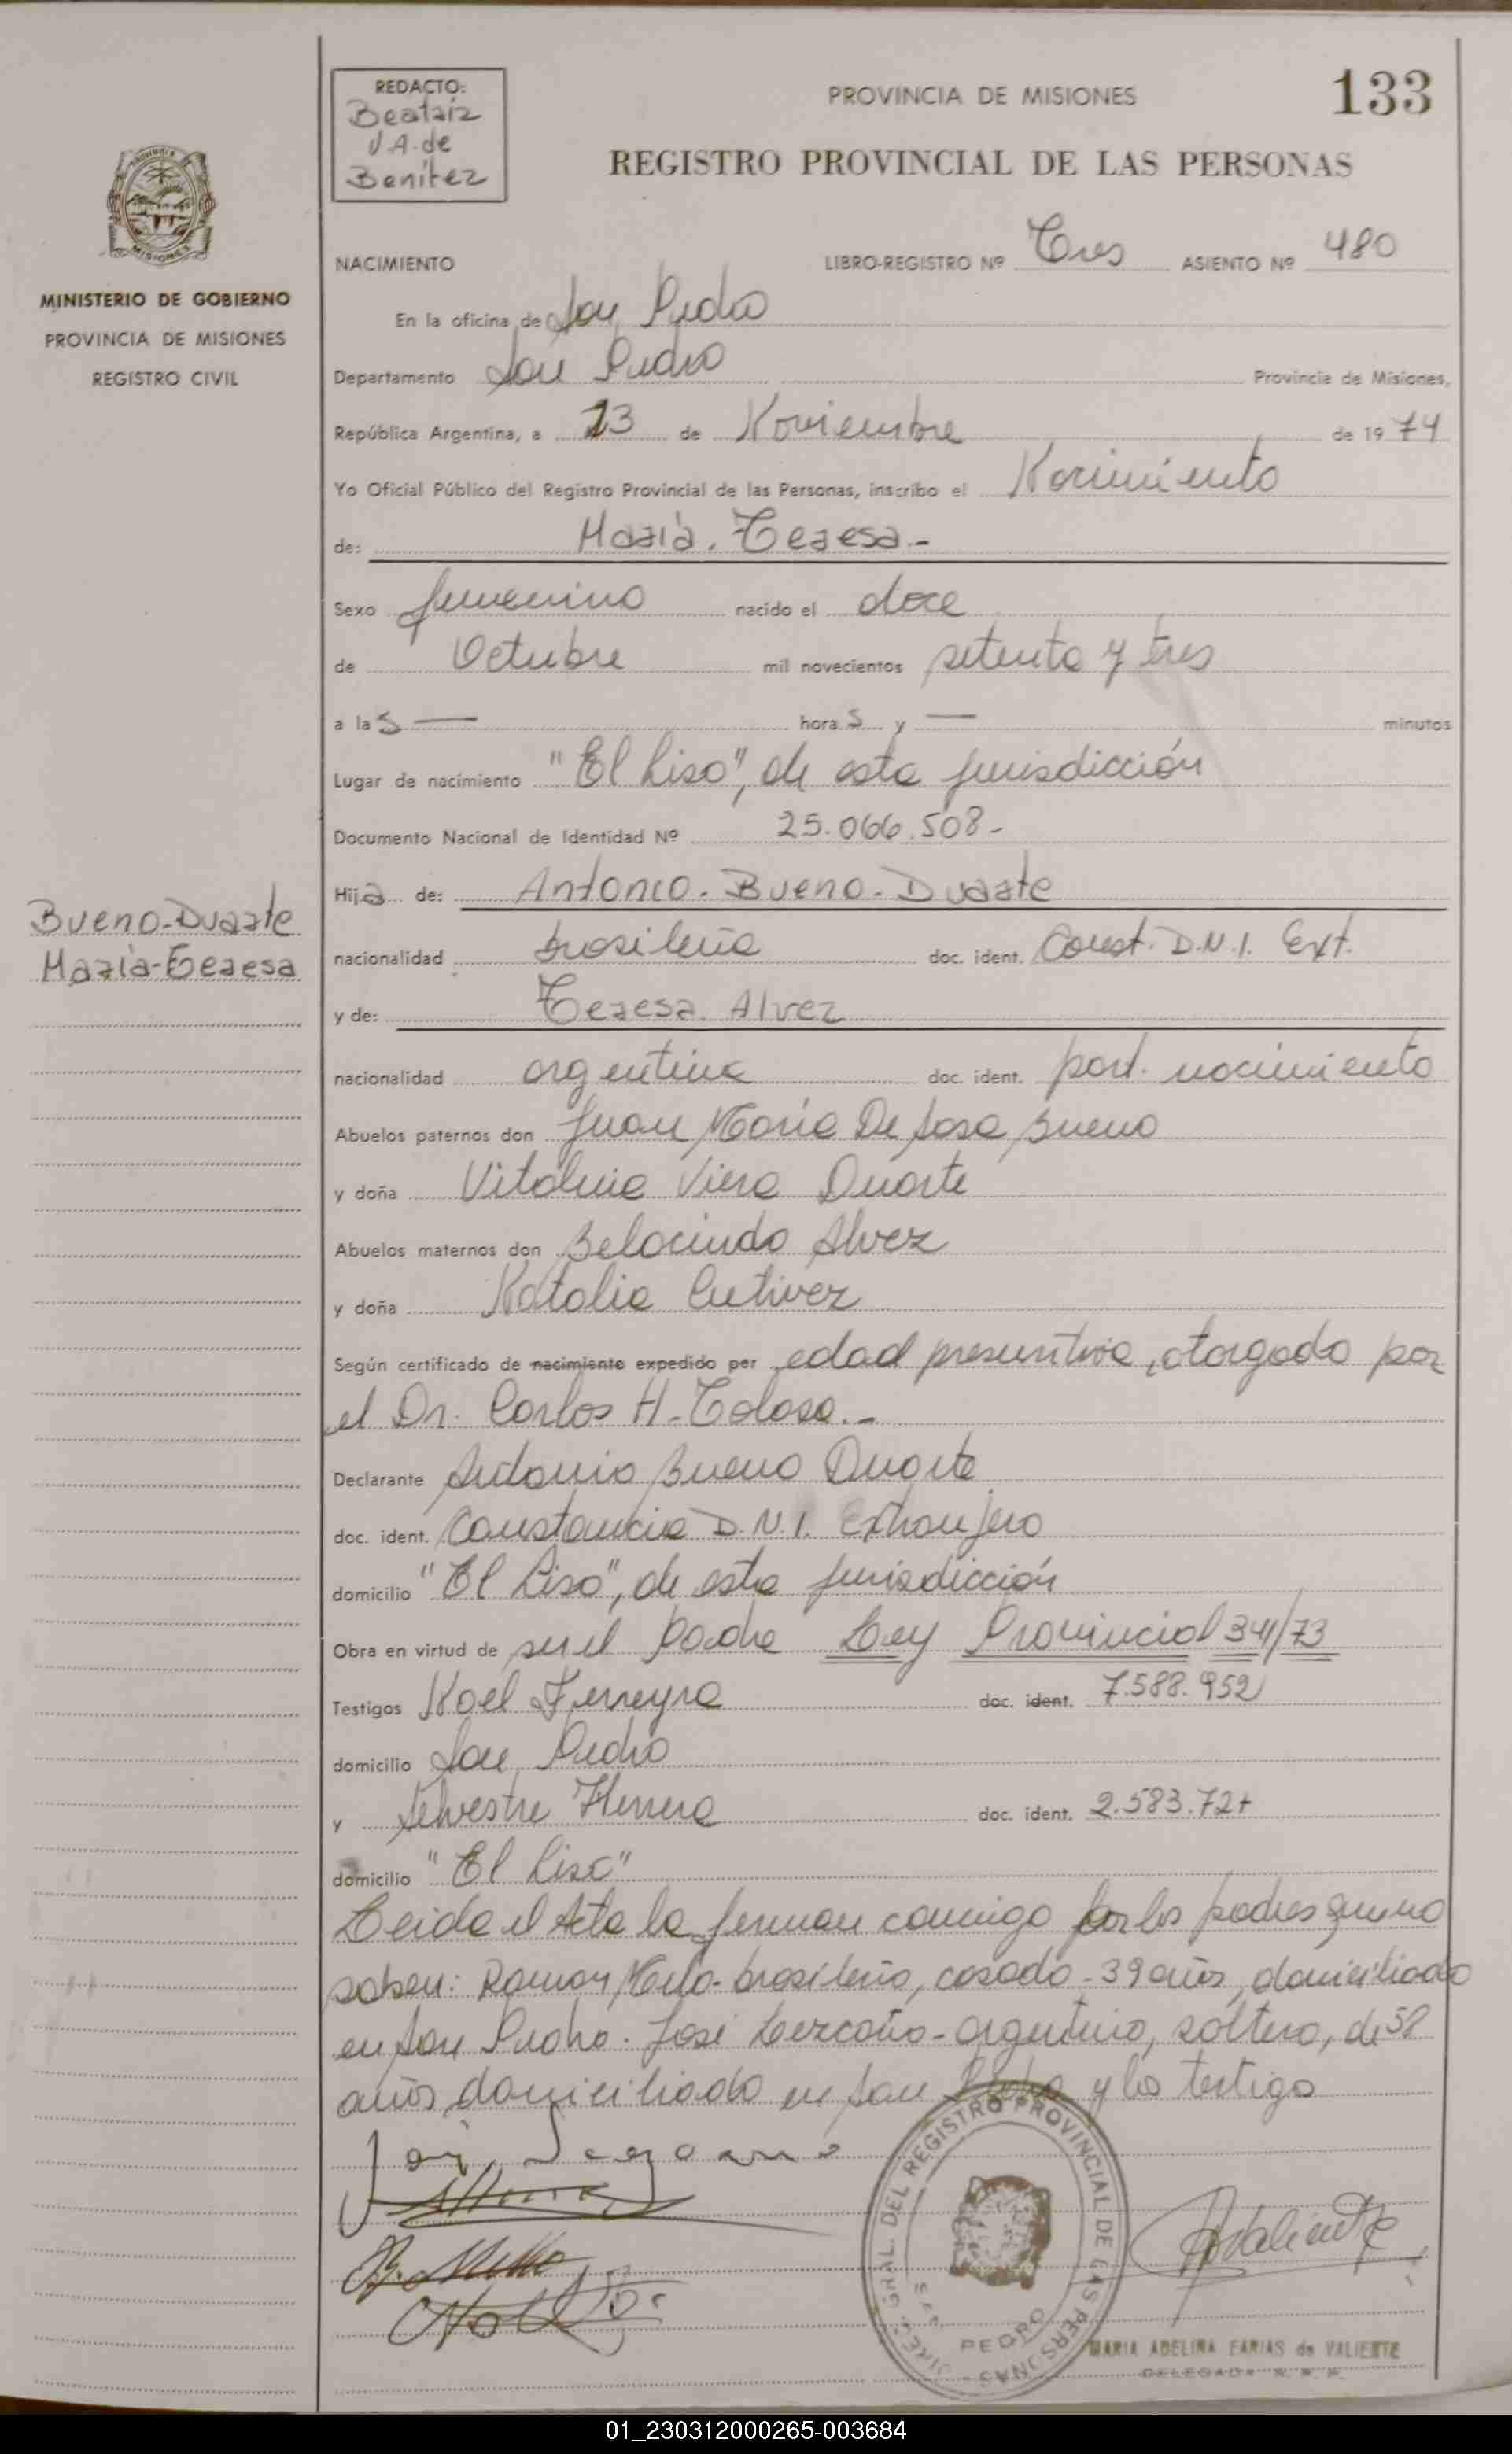 REDACTO:
Beatriz
V.A. de
Benitez
PROVINCIA DE MISIONES
133
REGISTRO PROVINCIAL DE LAS PERSONAS
MISIONES
MINISTERIO DE GOBIERNO
PROVINCIA DE MISIONES
REGISTRO CIVIL
NACIMIENTO LIBRO-REGISTRO Nº Tres ASIENTO Nº 480
En la oficina de San Pedro
Departamento San Pedro Provincia de Misiones,
República Argentina, a 13 de Noviembre de 1974
Yo Oficial Público del Registro Provincial de las Personas, inscribo el Nacimiento
de: María. Teresa.-
Sexo femenino nacido el doce
de Octubre mil novecientos setenta y tres
a las — horas y — minutos
Lugar de nacimiento "El Liso", de esta jurisdicción
Documento Nacional de Identidad Nº 25.066.508-
Hija de: Antonio. Bueno. Duarte
Bueno-Duarte
María-Teresa
nacionalidad brasileña doc. ident. Const. D.N.I. Ext.
y de: Teresa. Alvez
nacionalidad argentina doc. ident. part. nacimiento
Abuelos paternos don Juan María De Bueno
y doña Viera Duarte
Abuelos maternos don Belocindo Alvez
y doña Natalia
Según certificado de nacimiento expedido por edad presuntiva, otorgado por
el Dr. Carlos H. Toloso.-
Declarante Antonio Bueno Duarte
doc. ident. Constancia D.N.I. Extranjero
domicilio "El Liso", de esta jurisdicción
Obra en virtud de ser el Padre Ley Provincial 341/73
Testigos Noel Ferreyra doc. ident. 7.588.952
domicilio San Pedro
y Selvestre Herrera doc. ident. 2.583.727
domicilio "El Liso"
Leida el Acta la firman conmigo por los padres que no
saben: Ramon Melo-brasileño, casado-39 años, domiciliado
en San Pedro. José Lezcano-argentino, soltero, de 58
años, domiciliado en San Pedro y los testigo
DIREC. GRAL. DEL REGISTRO PROVINCIAL DE LAS PERSONAS
PEDRO
MARIA ADELINA FARIAS de VALIENTE
DELEGADA R. P. P.
01_230312000265-003684